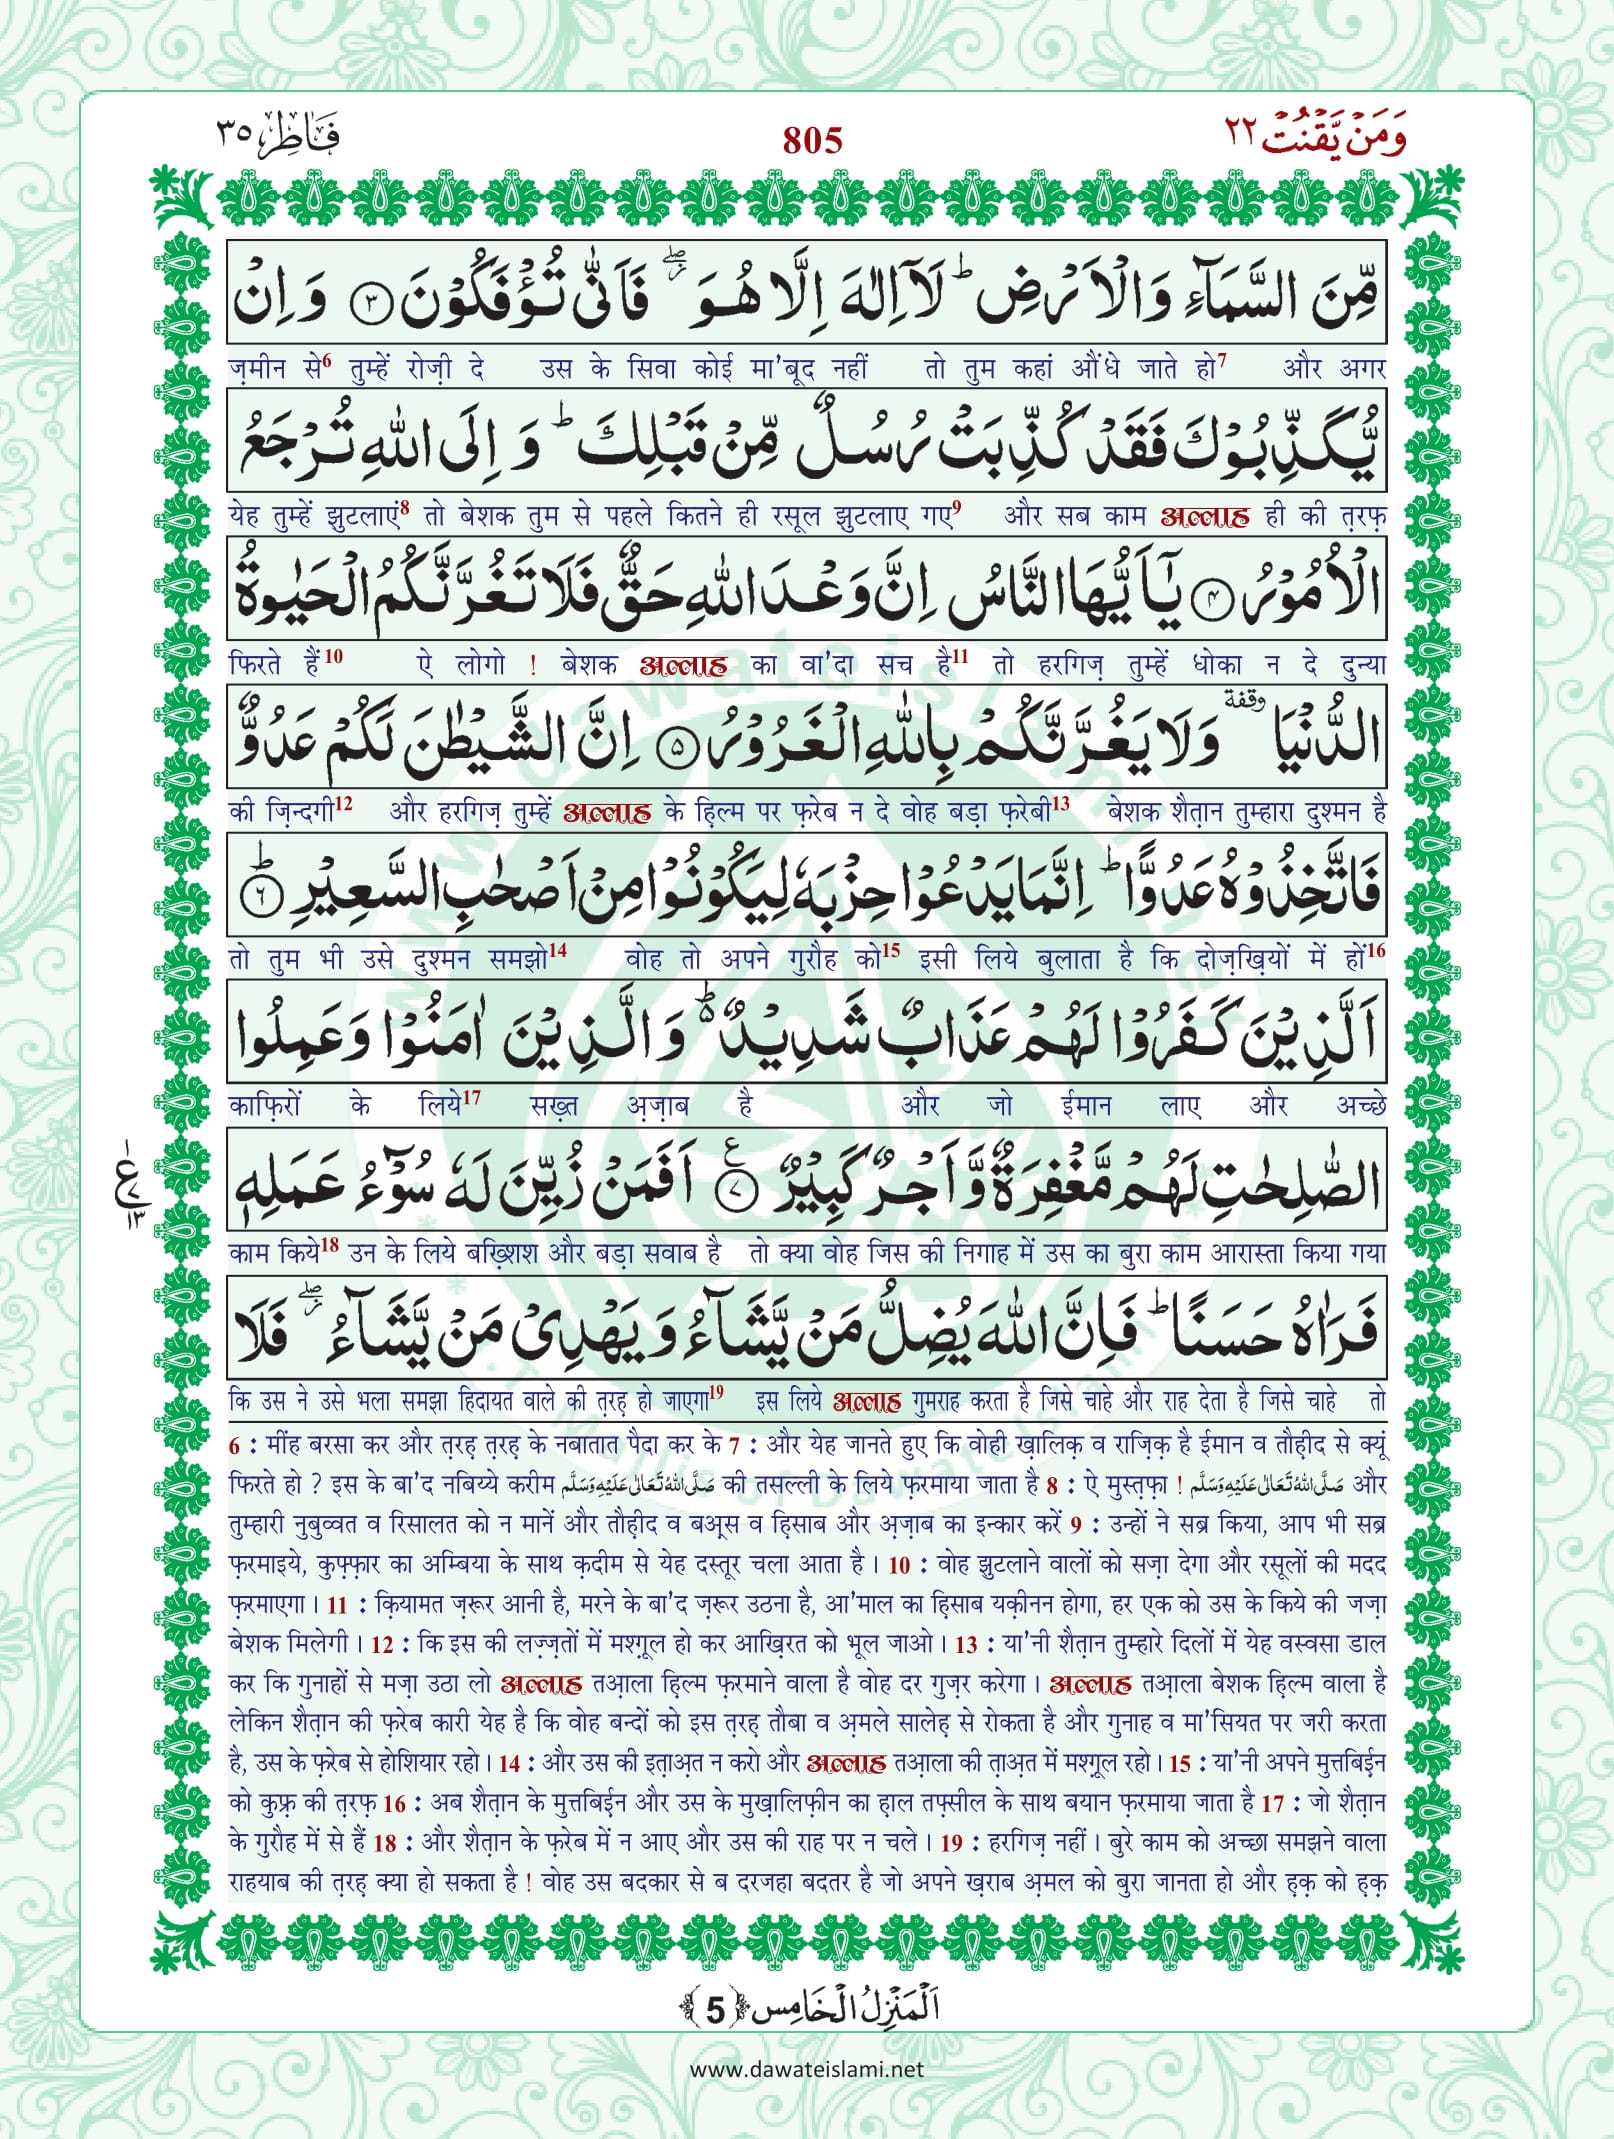 وَمَنۡ يَّقۡنُتۡ ٢٢
805
فَاطِر ٣٥
مِّنَ السَّمَآءِ وَالۡاَرۡضِ ؕ لَاۤ اِلٰهَ اِلَّا هُوَ ۖ٘ فَاَنّٰى تُؤۡفَكُوۡنَ ﴿٣﴾ وَ اِنۡ
ज़मीन से6 तुम्हें रोज़ी दे उस के सिवा कोई मा'बूद नहीं तो तुम कहां औंधे जाते हो7 और अगर
يُّكَذِّبُوۡكَ فَقَدۡ كُذِّبَتۡ رُسُلٌ مِّنۡ قَبۡلِكَ ؕ وَ اِلَى اللّٰهِ تُرۡجَعُ
येह तुम्हें झुटलाएं8 तो बेशक तुम से पहले कितने ही रसूल झुटलाए गए9 और सब काम अल्लाह ही की त़रफ़
الۡاُمُوۡرُ ﴿٤﴾ يٰۤاَيُّهَا النَّاسُ اِنَّ وَعۡدَ اللّٰهِ حَقٌّ فَلَا تَغُرَّنَّكُمُ الۡحَيٰوةُ
फिरते हैं10 ऐ लोगो ! बेशक अल्लाह का वा'दा सच है11 तो हरगिज़ तुम्हें धोका न दे दुन्या
الدُّنۡيَا ۥ وقفة وَلَا يَغُرَّنَّكُمۡ بِاللّٰهِ الۡغَرُوۡرُ ﴿٥﴾ اِنَّ الشَّيۡطٰنَ لَكُمۡ عَدُوٌّ
की ज़िन्दगी12 और हरगिज़ तुम्हें अल्लाह के हि़ल्म पर फ़रेब न दे वोह बड़ा फ़रेबी13 बेशक शैत़ान तुम्हारा दुश्मन है
فَاتَّخِذُوۡهُ عَدُوًّا ؕ اِنَّمَا يَدۡعُوۡا حِزۡبَهٗ لِيَكُوۡنُوۡا مِنۡ اَصۡحٰبِ السَّعِيۡرِ ؕ﴿٦﴾
तो तुम भी उसे दुश्मन समझो14 वोह तो अपने गुरौह को15 इसी लिये बुलाता है कि दोज़ख़ियों में हों16
اَلَّذِيۡنَ كَفَرُوۡا لَهُمۡ عَذَابٌ شَدِيۡدٌ ۬ؕ وَالَّذِيۡنَ اٰمَنُوۡا وَعَمِلُوا
काफ़िरों के लिये17 सख़्त अ़ज़ाब है और जो ईमान लाए और अच्छे
الصّٰلِحٰتِ لَهُمۡ مَّغۡفِرَةٌ وَّاَجۡرٌ كَبِيۡرٌ ﴿٧﴾ اَفَمَنۡ زُيِّنَ لَهٗ سُوۡٓءُ عَمَلِهٖ
काम किये18 उन के लिये बख़्शिश और बड़ा सवाब है तो क्या वोह जिस की निगाह में उस का बुरा काम आरास्ता किया गया
فَرَاٰهُ حَسَنًا ؕ فَاِنَّ اللّٰهَ يُضِلُّ مَنۡ يَّشَآءُ وَيَهۡدِىۡ مَنۡ يَّشَآءُ ۖ٘ فَلَا
कि उस ने उसे भला समझा हिदायत वाले की त़रह़ हो जाएगा19 इस लिये अल्लाह गुमराह करता है जिसे चाहे और राह देता है जिसे चाहे तो
6 : मींह बरसा कर और त़रह़ त़रह़ के नबातात पैदा कर के 7 : और येह जानते हुए कि वोही ख़ालिक़ व राज़िक़ है ईमान व तौह़ीद से क्यूं
फिरते हो ? इस के बा'द नबिय्ये करीम صَلَّى اللهُ تَعَالٰى عَلَيْهِ وَسَلَّم की तसल्ली के लिये फ़रमाया जाता है 8 : ऐ मुस्त़फ़ा ! صَلَّى اللهُ تَعَالٰى عَلَيْهِ وَسَلَّم और
तुम्हारी नुबुव्वत व रिसालत को न मानें और तौह़ीद व बअ़्स व ह़िसाब और अ़ज़ाब का इन्कार करें 9 : उन्हों ने सब्र किया, आप भी सब्र
फ़रमाइये, कुफ़्फ़ार का अम्बिया के साथ क़दीम से येह दस्तूर चला आता है । 10 : वोह झुटलाने वालों को सज़ा देगा और रसूलों की मदद
फ़रमाएगा । 11 : क़ियामत ज़रूर आनी है, मरने के बा'द ज़रूर उठना है, आ'माल का ह़िसाब यक़ीनन होगा, हर एक को उस के किये की जज़ा
बेशक मिलेगी । 12 : कि इस की लज़्ज़तों में मश्ग़ूल हो कर आख़िरत को भूल जाओ । 13 : या'नी शैत़ान तुम्हारे दिलों में येह वस्वसा डाल
कर कि गुनाहों से मज़ा उठा लो अल्लाह तआ़ला ह़िल्म फ़रमाने वाला है वोह दर गुज़र करेगा । अल्लाह तआ़ला बेशक ह़िल्म वाला है
लेकिन शैत़ान की फ़रेब कारी येह है कि वोह बन्दों को इस त़रह़ तौबा व अ़मले सालेह़ से रोकता है और गुनाह व मा'सियत पर जरी करता
है, उस के फ़रेब से होशियार रहो । 14 : और उस की इत़ाअ़त न करो और अल्लाह तआ़ला की त़ाअ़त में मश्ग़ूल रहो । 15 : या'नी अपने मुत्तबिई़न
को कुफ़्र की त़रफ़ 16 : अब शैत़ान के मुत्तबिई़न और उस के मुख़ालिफ़ीन का ह़ाल तफ़्सील के साथ बयान फ़रमाया जाता है 17 : जो शैत़ान
के गुरौह में से हैं 18 : और शैत़ान के फ़रेब में न आए और उस की राह पर न चले । 19 : हरगिज़ नहीं । बुरे काम को अच्छा समझने वाला
राहयाब की त़रह़ क्या हो सकता है ! वोह उस बदकार से ब दरजहा बदतर है जो अपने ख़राब अ़मल को बुरा जानता हो और ह़क़ को ह़क़
اَلۡمَنۡزِلُ الۡخَامِس ﴿5﴾
www.dawateislami.net